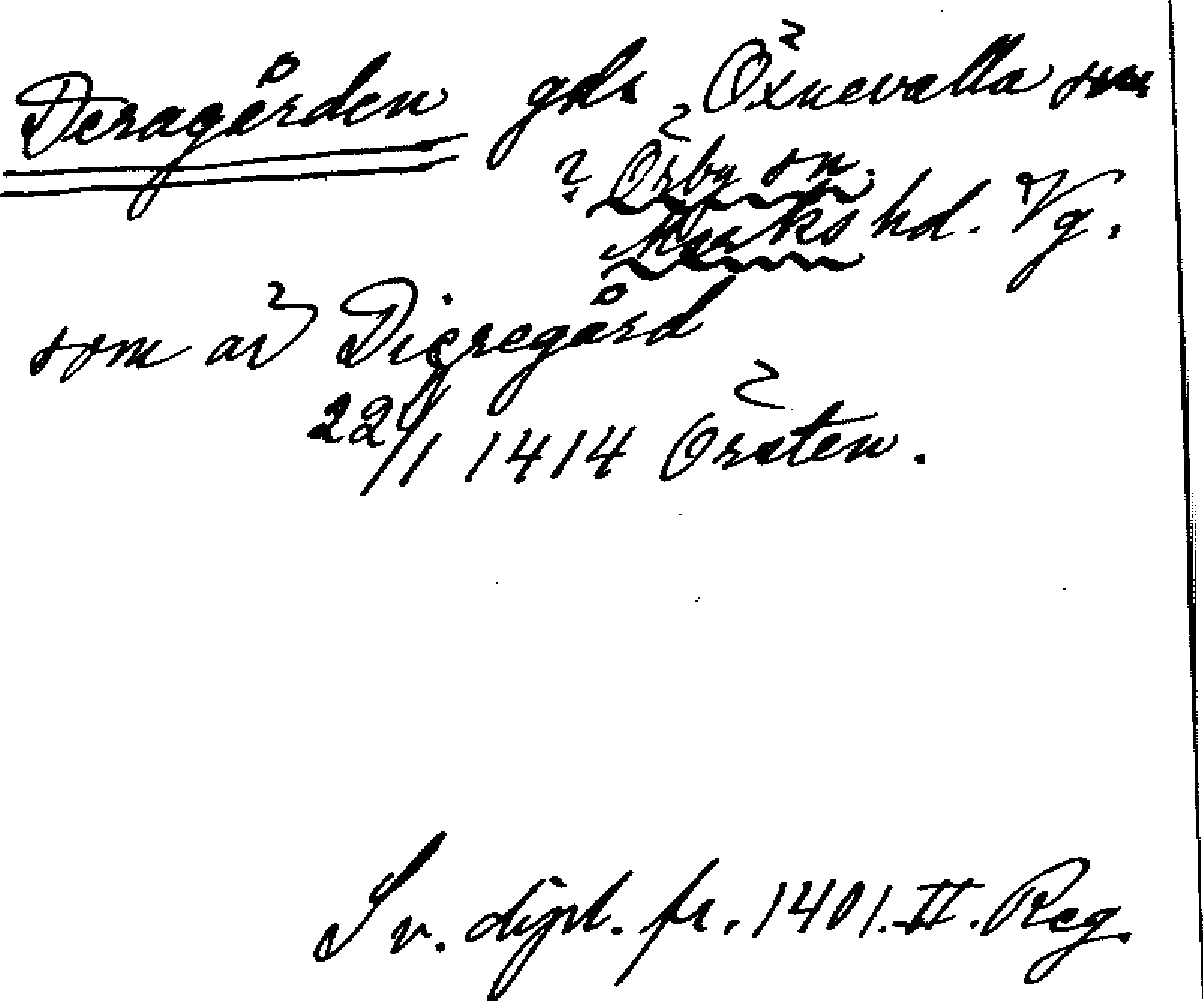 Deragården gdr Öxnevalla sn
? Örby sn.
Marks hd. Vg.
som av Digregård
22/1 1414 Örsten.
Sv. dipl. fr. 1401. II. Reg.